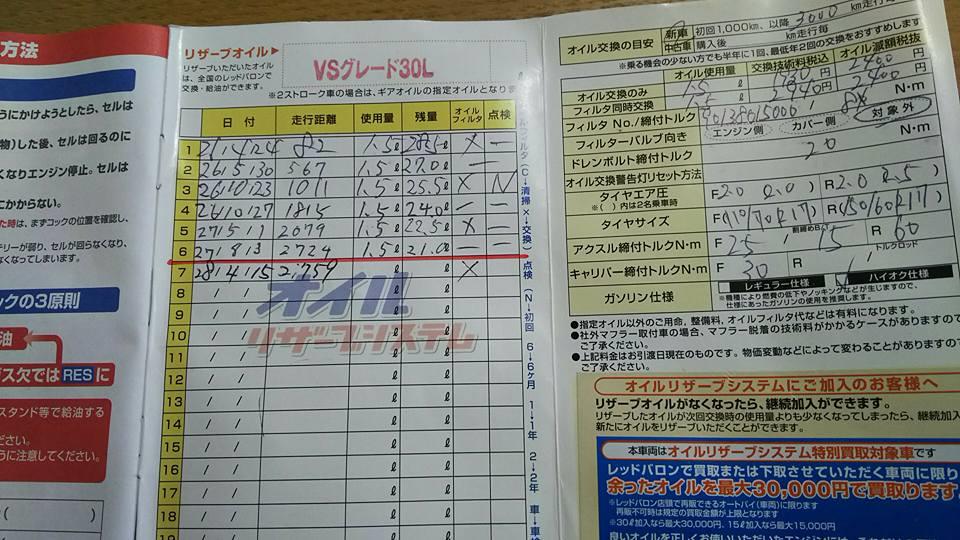 方法
うにかけようとしたら、セルは
物)した後、セルは回るのに
くなりエンジン停止。セルは
わからない。
た時は、まずコックの位置を確認し、
テリーが弱り、セルが回らなくなり、
なくなってしまいます。
ックの3原則
油
ガス欠ではRESに
スタンド等で給油する
ださい。
うに注意してください。
リザーブオイル▶
リザーブいただいたオイル
は、全国のレッドバロンで
交換・給油ができます。
VSグレード30L
※2ストローク車の場合は、ギアオイルの指定オイルとなりま
日付 走行距離 使用量 残量 オイルフィルタ 点検
1 26/4/24 82 1.5ℓ 28.5ℓ × ー
2 26/5/30 567 1.5ℓ 27.0ℓ ー ー
3 26/10/23 1011 1.5ℓ 25.5ℓ × N
4 26/10/27 1815 1.5ℓ 24.0ℓ ー ー
5 27/5/1 2079 1.5ℓ 22.5ℓ × ー
6 27/8/3 2724 1.5ℓ 21.0ℓ ー ー
7 28/4/15 2759 ℓ ×
8 / / ℓ ℓ
9 / / ℓ
10 / / ℓ
11 / / ℓ ℓ
12 / / ℓ ℓ
13 / / ℓ ℓ
14 / / ℓ ℓ
15 / / ℓ ℓ
16 / / ℓ ℓ
17 / / ℓ ℓ
18 / / ℓ ℓ
19
オイル
リザーブシステム
ルフィルタ(C→清掃 ×→交換) 点検(N→初回 6→6ヶ月 1→1年 2→2年 車→車検
オイル交換の目安 新車 初回1,000km、以降 3000 km走行毎
中古車 購入後 km走行毎
※乗る機会の少ない方でも半年に1回、最低年2回の交換をおすすめします
オイル使用量 交換技術料税込 オイル減額税抜
オイル交換のみ 1.5 ℓ 円 2400 円
フィルタ同時交換 1.5 ℓ 円 2400 円
フィルタNo./締付トルク
フィルターバルブ向き エンジン側 カバー側 対象外
ドレンボルト締付トルク 20 N・m
オイル交換警告灯リセット方法
タイヤエア圧
※( )内は2名乗車時 F2.0( 2.0 ) R2.0( 2.5 )
タイヤサイズ F(110/70R17) R(150/60R17)
アクスル締付トルクN・m F 25 割締め印 15 R 60
キャリパー締付トルクN・m F 30 R トルクロッド
ガソリン仕様 レギュラー仕様 ハイオク仕様
※機種により燃費の低下やノッキングなどが生じますので、
仕様にあったガソリンの使用を推奨します。
●指定オイル以外のご用命、整備料、オイルフィルタ代などは有料になります。
●社外マフラー取付車の場合、マフラー脱着の技術料がかかるケースがありますので
ご了承ください。
●上記料金はお引渡日現在のものです。物価変動などによって変わることがありますので
ご了承ください。
オイルリザーブシステムにご加入のお客様へ
リザーブオイルがなくなったら、継続加入ができます。
リザーブしたオイルが次回交換時の使用量よりも少なくなってしまったら、継続加入
新たにオイルをリザーブいただくことができます。
本車両はオイルリザーブシステム特別買取対象車です
レッドバロンで買取または下取させていただく車両に限り
余ったオイルを最大30,000円で買取ります。
※レッドバロン店頭で再販できるオートバイ(車両)に限ります
再販不可時は規定の買取金額が上限となります
※30ℓ加入なら最大30,000円、15ℓ加入なら最大15,000円
良いオイルを正しくお使いいただいたエンジンには、